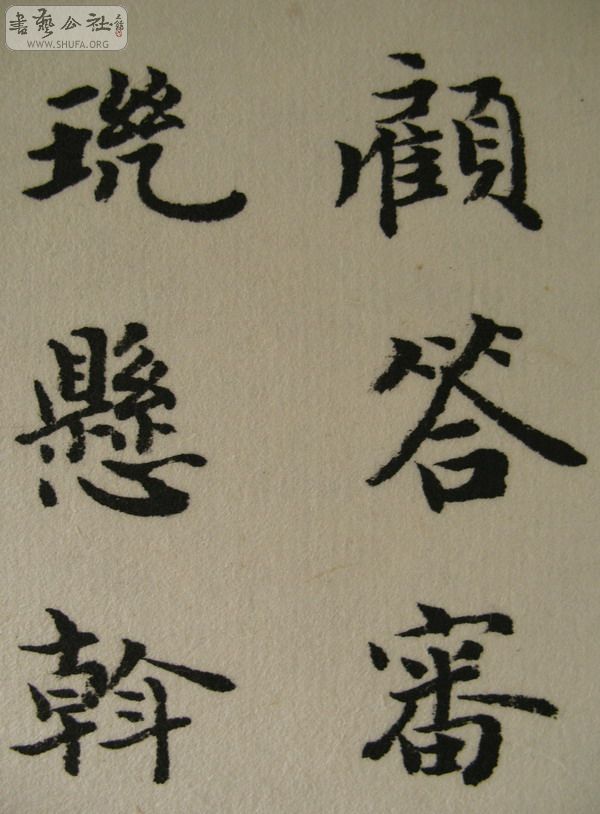 書藝公社
WWW.SHUFA.ORG
顧答審
璣懸斡